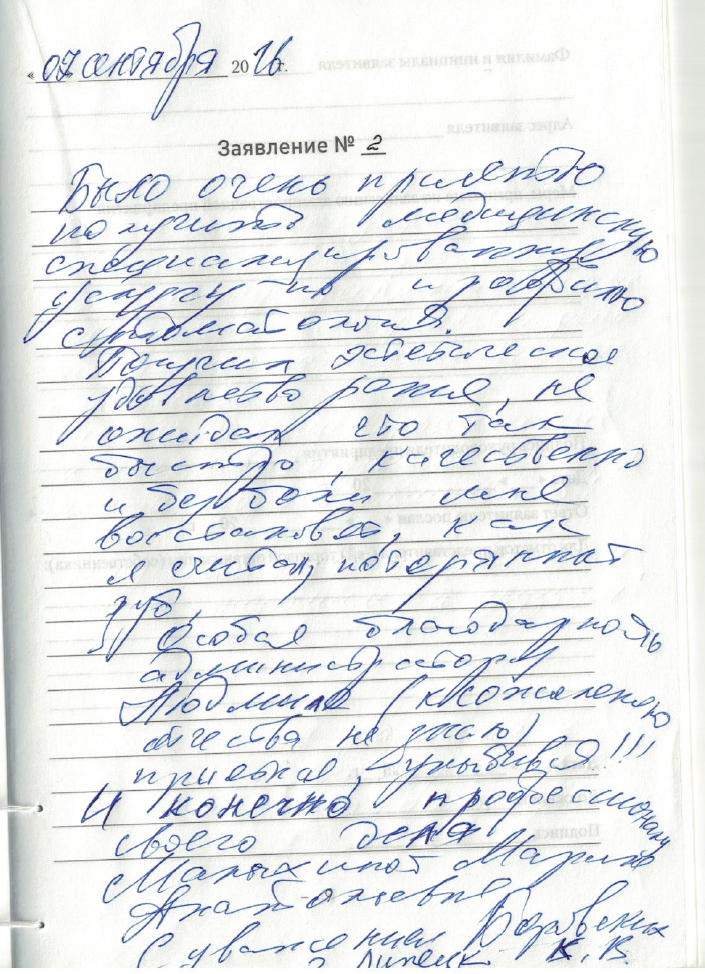 « 07 » сентября 2016 г.
Заявление № 2
Было очень приятно
получить медицинскую
специализированную
услугу по
стоматологии.
Получил эстетическое
не
ожидал что так
быстро, качественно
и без боли мне
восстановят, как
я считал, потерянный
зуб,
Особая благодарность
администратору
Людмиле (к сожалению
отчества не знаю)
приветлива, улыбчива!!!
И конечно профессионалу
своего дела
Малыхиной Марине
Анатольевне
С уважением Боровских
г. Липецк К. В.